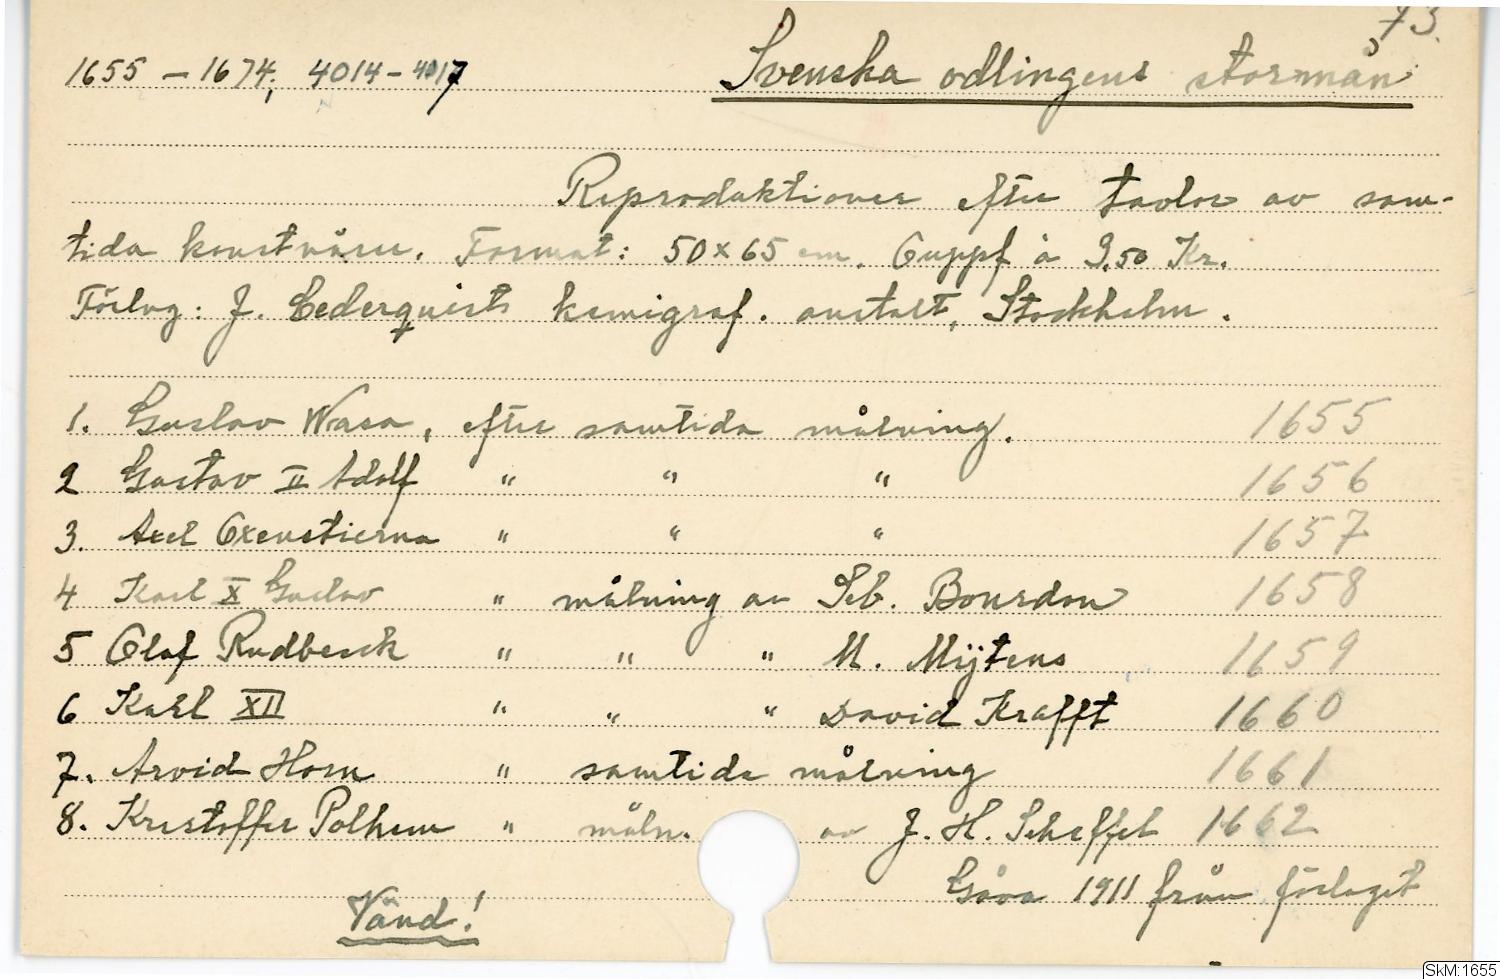 73.
1655 – 1674; 4014 – 4017
Svenska odlingens stormän
Reproduktioner efter tavlor av sam-
tida konstnärer. Format: 50 x 65 cm. Gruppf à 3.50 Kr.
Förlag: J. Cederquists kemigraf. anstalt, Stockholm.
1. Gustav Wasa, efter samtida målning. 1655
2 Gustav II Adolf " " " 1656
3. Axel Oxenstierna " " " 1657
4 Karl X Gustav " målning av Seb. Bourdon 1658
5 Olof Rudbeck " " " M. Mijtens 1659
6 Karl XII " " " David Krafft 1660
7. Arvid Horn " samtida målning 1661
8. Kristoffer Polhem " måln. av J. H. Scheffel 1662
Gåva 1911 från förlaget
Vänd!
SkM:1655